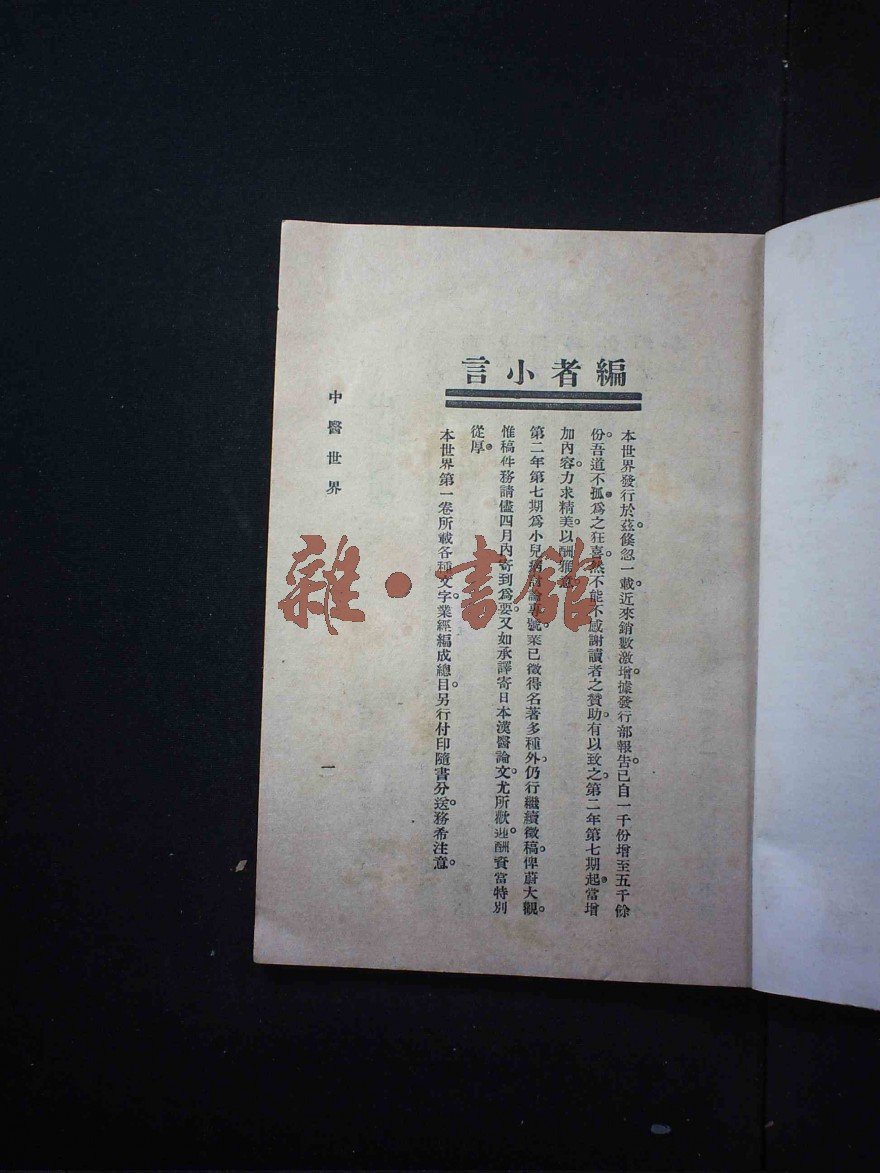 編者小言
本世界發行於茲。倏忽一載。近來銷數激增。據發行部報告。已自一千份增至五千餘
份。吾道不孤。爲之狂喜。然不能不感謝讀者之贊助。有以致之。第二年第七期起。當增
加內容。力求精美。以酬雅意。
第二年第七期爲小兒病討論專號。業已徵得名著多種外。仍行繼續徵稿。俾蔚大觀。
惟稿件務請儘四月內寄到爲要。又如承譯寄日本漢醫論文。尤所歡迎。酬資當特別
從厚。
本世界第一卷所載各種文字。業經編成總目。另行付印。隨書分送。務希注意。
中醫世界
一
雜·書館